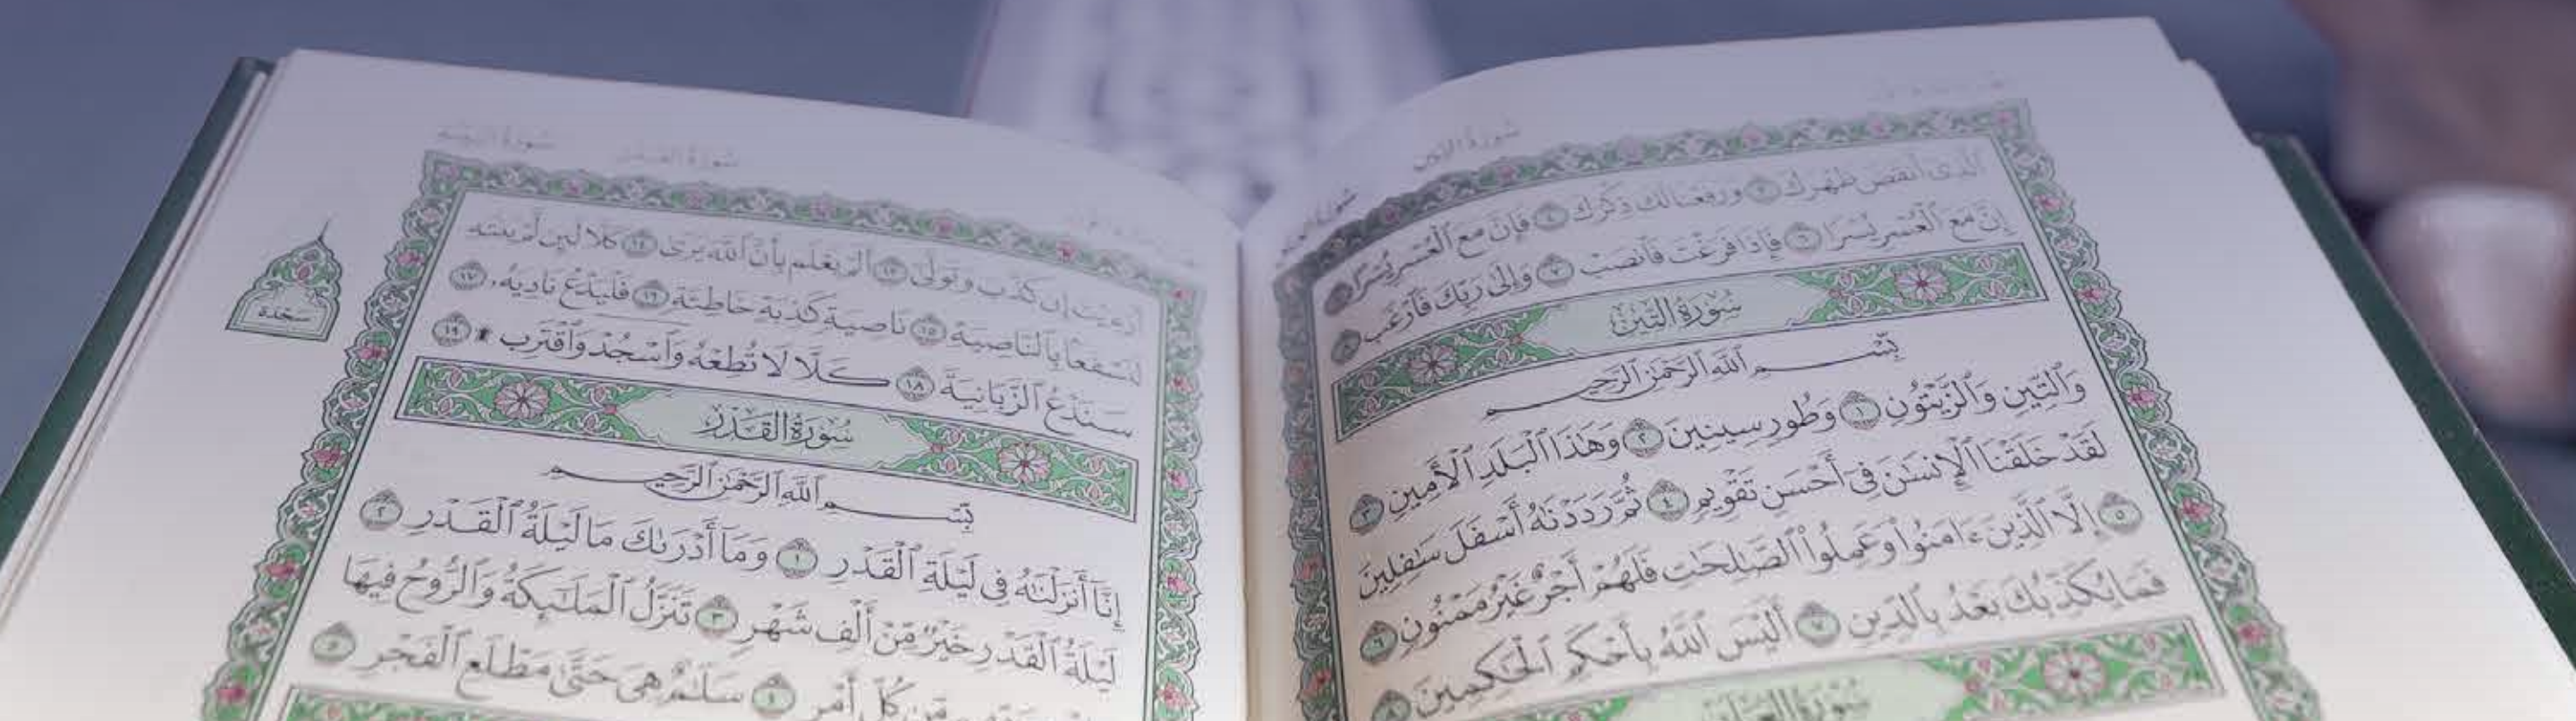 سُورَةُ التِّينِ
ٱلَّذِىٓ أَنقَضَ ظَهْرَكَ ٣ وَرَفَعْنَا لَكَ ذِكْرَكَ ٤ فَإِنَّ مَعَ ٱلْعُسْرِ يُسْرًا ٥
إِنَّ مَعَ ٱلْعُسْرِ يُسْرًا ٦ فَإِذَا فَرَغْتَ فَٱنصَبْ ٧ وَإِلَىٰ رَبِّكَ فَٱرْغَب ٨
سُورَةُ التِّينِ
بِسْمِ ٱللَّهِ ٱلرَّحْمَٰنِ ٱلرَّحِيمِ
وَٱلتِّينِ وَٱلزَّيْتُونِ ١ وَطُورِ سِينِينَ ٢ وَهَٰذَا ٱلْبَلَدِ ٱلْأَمِينِ ٣
لَقَدْ خَلَقْنَا ٱلْإِنسَٰنَ فِىٓ أَحْسَنِ تَقْوِيمٍ ٤ ثُمَّ رَدَدْنَٰهُ أَسْفَلَ سَٰفِلِينَ
٥ إِلَّا ٱلَّذِينَ ءَامَنُوا۟ وَعَمِلُوا۟ ٱلصَّٰلِحَٰتِ فَلَهُمْ أَجْرٌ غَيْرُ مَمْنُونٍ ٦
فَمَا يُكَذِّبُكَ بَعْدُ بِٱلدِّينِ ٧ أَلَيْسَ ٱللَّهُ بِأَحْكَمِ ٱلْحَٰكِمِينَ ٨
سُورَةُ العَلَقِ
أَرَءَيْتَ إِن كَذَّبَ وَتَوَلَّىٰٓ ١٣ أَلَمْ يَعْلَم بِأَنَّ ٱللَّهَ يَرَىٰ ١٤ كَلَّا لَئِن لَّمْ يَنتَهِ
لَنَسْفَعًۢا بِٱلنَّاصِيَةِ ١٥ نَاصِيَةٍ كَٰذِبَةٍ خَاطِئَةٍ ١٦ فَلْيَدْعُ نَادِيَهُۥ ١٧
سَنَدْعُ ٱلزَّبَانِيَةَ ١٨ كَلَّا لَا تُطِعْهُ وَٱسْجُدْ وَٱقْتَرِب ۩ ١٩
سَجْدَة
سُورَةُ القَدْرِ
بِسْمِ ٱللَّهِ ٱلرَّحْمَٰنِ ٱلرَّحِيمِ
إِنَّآ أَنزَلْنَٰهُ فِى لَيْلَةِ ٱلْقَدْرِ ١ وَمَآ أَدْرَىٰكَ مَا لَيْلَةُ ٱلْقَدْرِ ٢
لَيْلَةُ ٱلْقَدْرِ خَيْرٌ مِّنْ أَلْفِ شَهْرٍ ٣ تَنَزَّلُ ٱلْمَلَٰٓئِكَةُ وَٱلرُّوحُ فِيهَا
مِّن كُلِّ أَمْرٍ ٤ سَلَٰمٌ هِىَ حَتَّىٰ مَطْلَعِ ٱلْفَجْرِ ٥